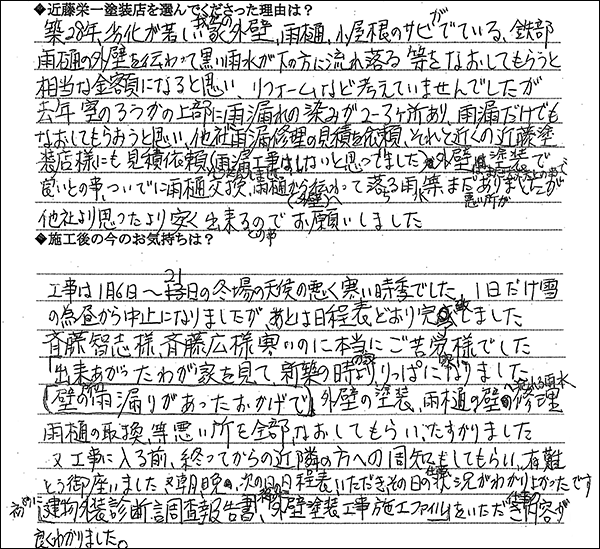 ◆近藤栄一塗装店を選んでくださった理由は?
築28年、劣化が著しい我家の外壁、雨樋、小屋根のサビがでている、鉄部
雨樋の外壁を伝わって黒い雨水が下の方に流れ落る等をなおしてもらうと
相当な金額になると思い、リフォームなど考えていませんでしたが
去年 窓の3つかの上部に雨漏れの染みが2~3ヶ所あり、雨漏だけでも
なおしてもらおうと思い、他社雨漏修理の見積を依頼、それと近くの近藤塗
装店様にも見積依頼(雨漏工事はしないと思ってました)外壁は塗装で
良いとの事、ついでに雨樋交換、雨樋から伝わって(外壁へ)落ちる雨水等、まだ悪い所がありましたが
他社より思ったより安く出来るとの事のでお願いしました
◆施工後の今のお気持ちは?
工事は1月6日~21日の冬場の天候の悪く寒い時季でした、1日だけ雪
の為昼から中止になりましたが、あとは日程表どおり完成しました
斉藤智志様、斉藤広様寒いのに本当にご苦労様でした
出来あがったわが家を見て、新築の時の家よりりっぱに家になりました
(壁の雨漏りがあったおかげで)外壁の塗装、雨樋の壁へ流れる雨水修理
雨樋の取換、等悪い所を全部なおしてもらい、たすかりました
又工事に入る前、終ってからの近隣の方への周知もしてもらい、有難
とう御座いました、又朝晩の、次の日の日程表いただきその日の仕事の状況がわかりよかったです
初めに建物外装診断調査報告書、最後に外壁塗装工事施工ファイルをいただき仕事の内容が
良くわかりました。